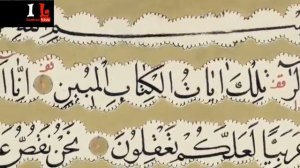 تِلْكَ اٰيَاتُ الْكِتَابِ الْمُبٖينِ اِنَّٓا
رَبِيًّا لَعَلَّكُمْ تَعْقِلُونَ نَحْنُ نَقُصُّ عَ